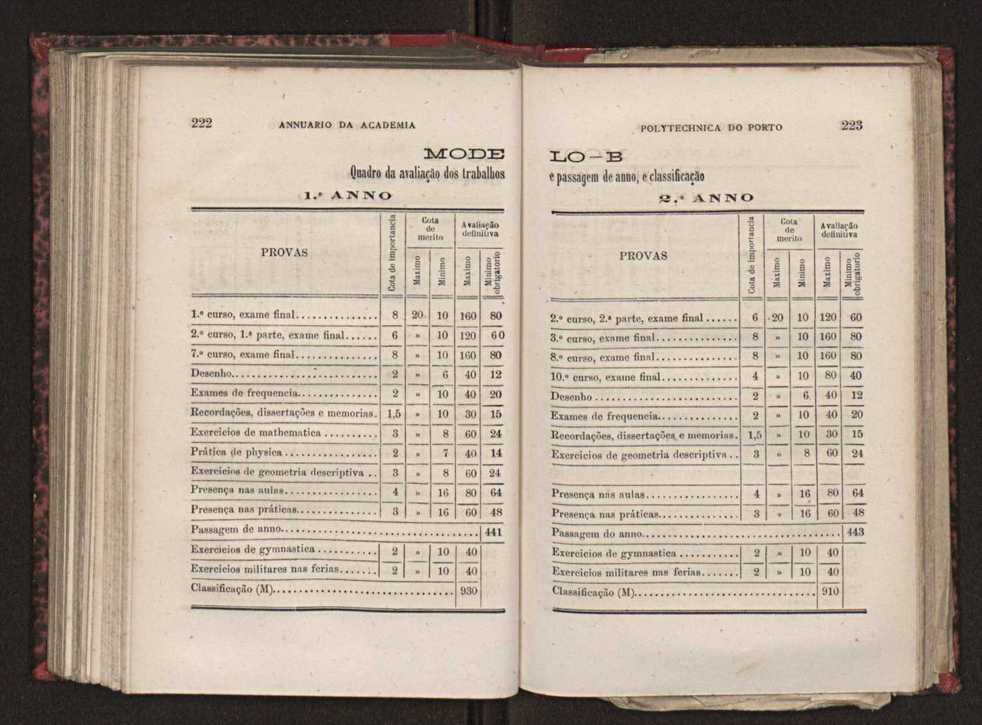 222 ANNUARIO DA ACADEMIA
MODE
Quadro da avaliação dos trabalhos
1.º ANNO
PROVAS
Cota de importancia
Cota de merito
Maximo
Minimo
Avaliação definitiva
Maximo
Minimo obrigatorio
1.º curso, exame final............... 8 20 10 160 80
2.º curso, 1.ª parte, exame final...... 6 » 10 120 60
7.º curso, exame final............... 8 » 10 160 80
Desenho........................... 2 » 6 40 12
Exames de frequencia.............. 2 » 10 40 20
Recordações, dissertações e memorias. 1,5 » 10 30 15
Exercicios de mathematica .......... 3 » 8 60 24
Prática de physica................. 2 » 7 40 14
Exercicios de geometria descriptiva .. 3 » 8 60 24
Presença nas aulas................. 4 » 16 80 64
Presença nas práticas............... 3 » 16 60 48
Passagem de anno.................................. 441
Exercicios de gymnastica ........... 2 » 10 40
Exercicios militares nas ferias....... 2 » 10 40
Classificação (M)................................. 930
POLYTECHNICA DO PORTO 223
LO–B
e passagem de anno, e classificação
2.º ANNO
PROVAS
Cota de importancia
Cota de merito
Maximo
Minimo
Avaliação definitiva
Maximo
Minimo obrigatorio
2.º curso, 2.ª parte, exame final ...... 6 20 10 120 60
3.º curso, exame final............... 8 » 10 160 80
8.º curso, exame final............... 8 » 10 160 80
10.º curso, exame final.............. 4 » 10 80 40
Desenho .......................... 2 » 6 40 12
Exames de frequencia.............. 2 » 10 40 20
Recordações, dissertações e memorias. 1,5 » 10 30 15
Exercicios de geometria descriptiva .. 3 » 8 60 24
Presença nas aulas................. 4 » 16 80 64
Presença nas práticas............... 3 » 16 60 48
Passagem do anno.................................. 443
Exercicios de gymnastica ........... 2 » 10 40
Exercicios militares nas ferias....... 2 » 10 40
Classificação (M)................................. 910